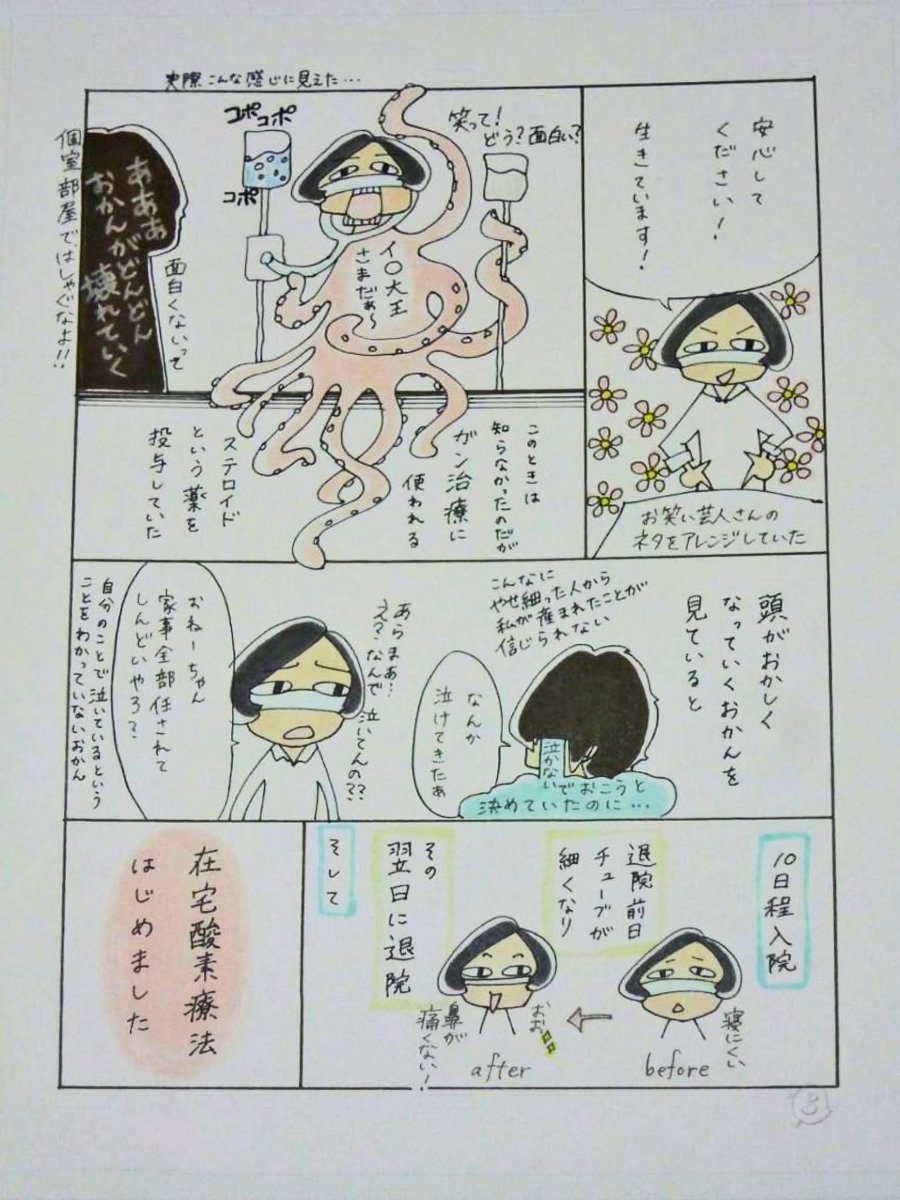 安心して
ください!
生きています!
お笑い芸人さんの
ネタをアレンジしていた
実際こんな感じに見えた…
笑って!
どう?面白い?
コポコポ
コポ
イ〇大王
さまだぁ〜
面白くないって
あああ
おかんがどんどん
壊れていく
個室部屋ではしゃぐなよ!!
このときは
知らなかったのだが
ガン治療に
使われる
ステロイド
という薬を
投与していた
頭がおかしく
なっていくおかんを
見ていると
こんなに
やせ細った人から
私が産まれたことが
信じられない
なんか
泣けてきたぁ
泣かないでおこうと
決めていたのに…
あらまぁ…
え?なんで泣いてんの??
おねーちゃん
家事全部任されて
しんどいやろ?
自分のことで泣いているという
ことをわかっていないおかん
10日程入院
寝にくい
before
退院前日
チューブが
細くなり
おお
鼻が
痛くない!
after
その
翌日に退院
そして
在宅酸素療法
はじめました
3